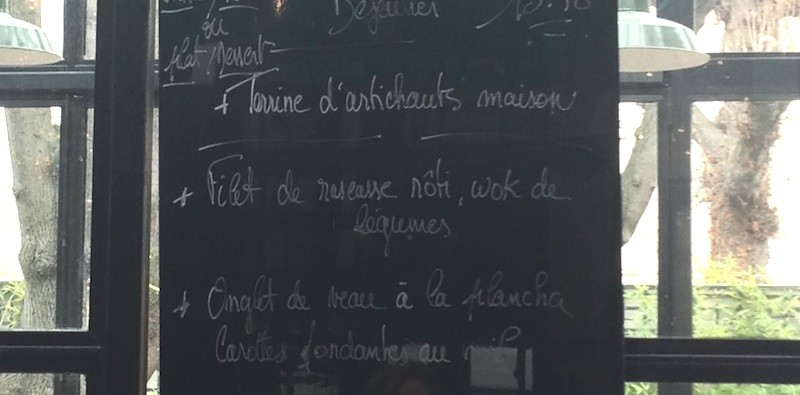 ou
Déjeuner
plat/Dessert
+ Terrine d'artichauts maison
+ Filet de rascasse rôti, wok de
légumes
+ Onglet de veau à la plancha
Carottes fondantes au miel